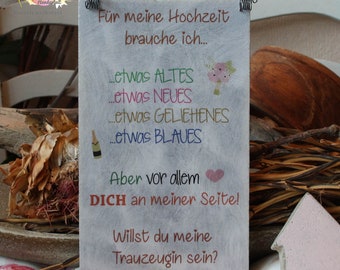 Für meine Hochzeit
brauche ich...
...etwas ALTES
...etwas NEUES
...etwas GELIEHENES
...etwas BLAUES
Aber vor allem
DICH an meiner Seite!
Willst du meine
Trauzeugin sein?